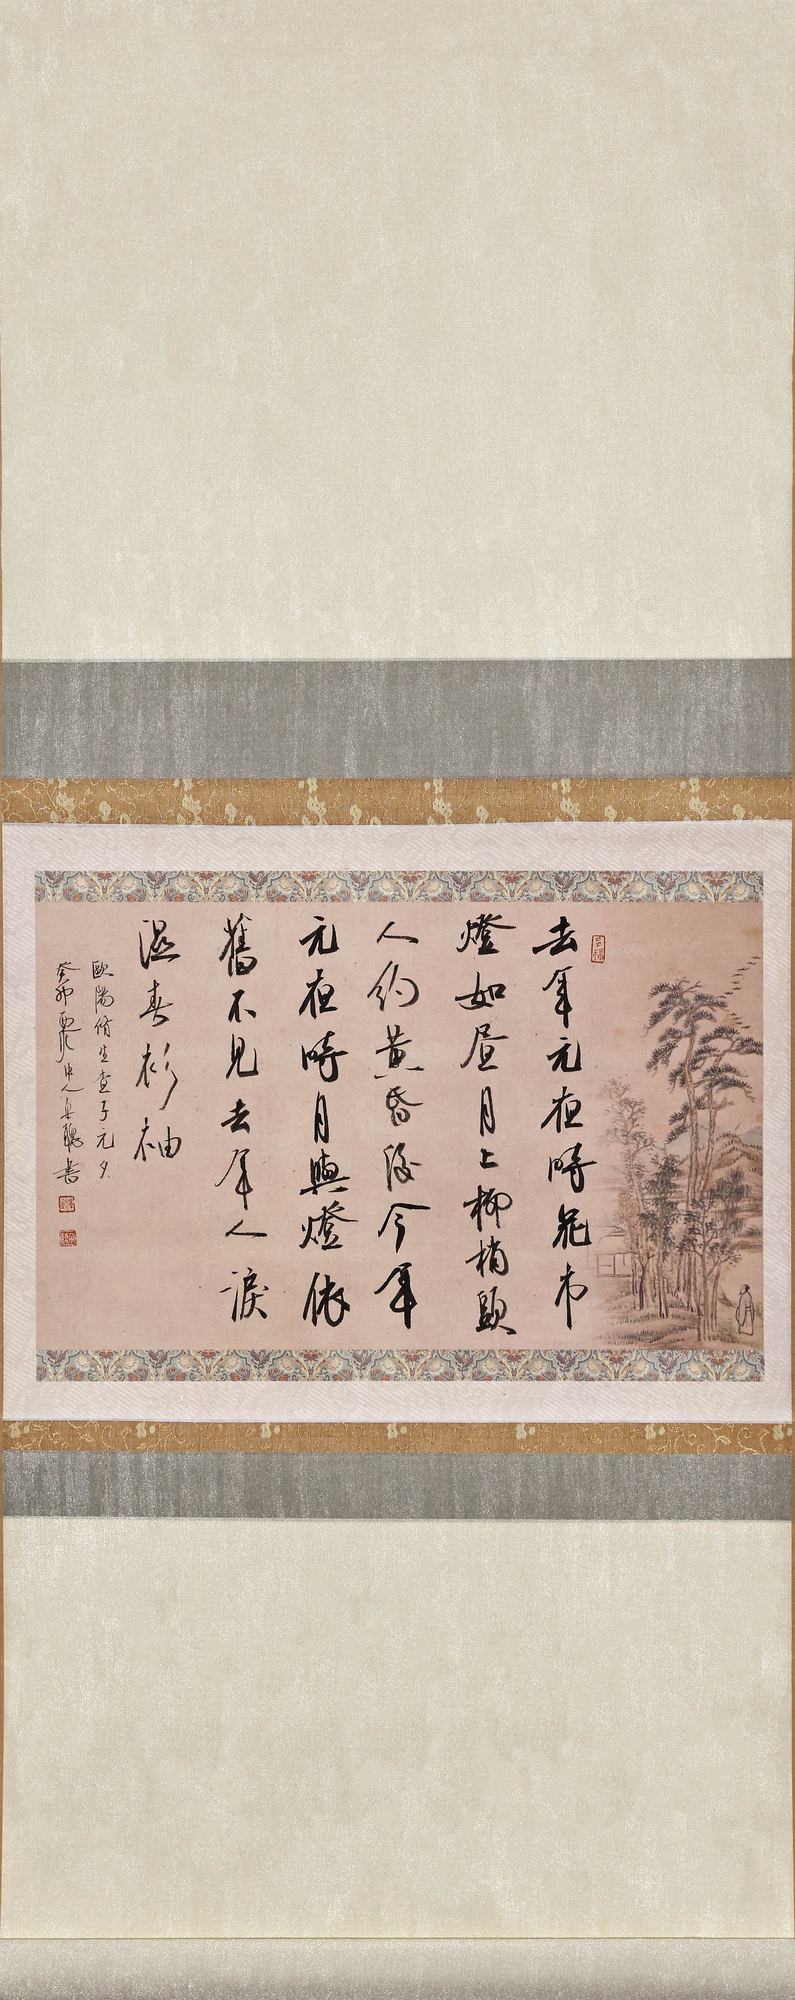 去年元夜時花市
燈如晝月上柳梢頭
人約黃昏後今年
元夜時月與燈依
舊不見去年人淚
濕春衫袖
歐陽脩生查子元夕
癸卯
書